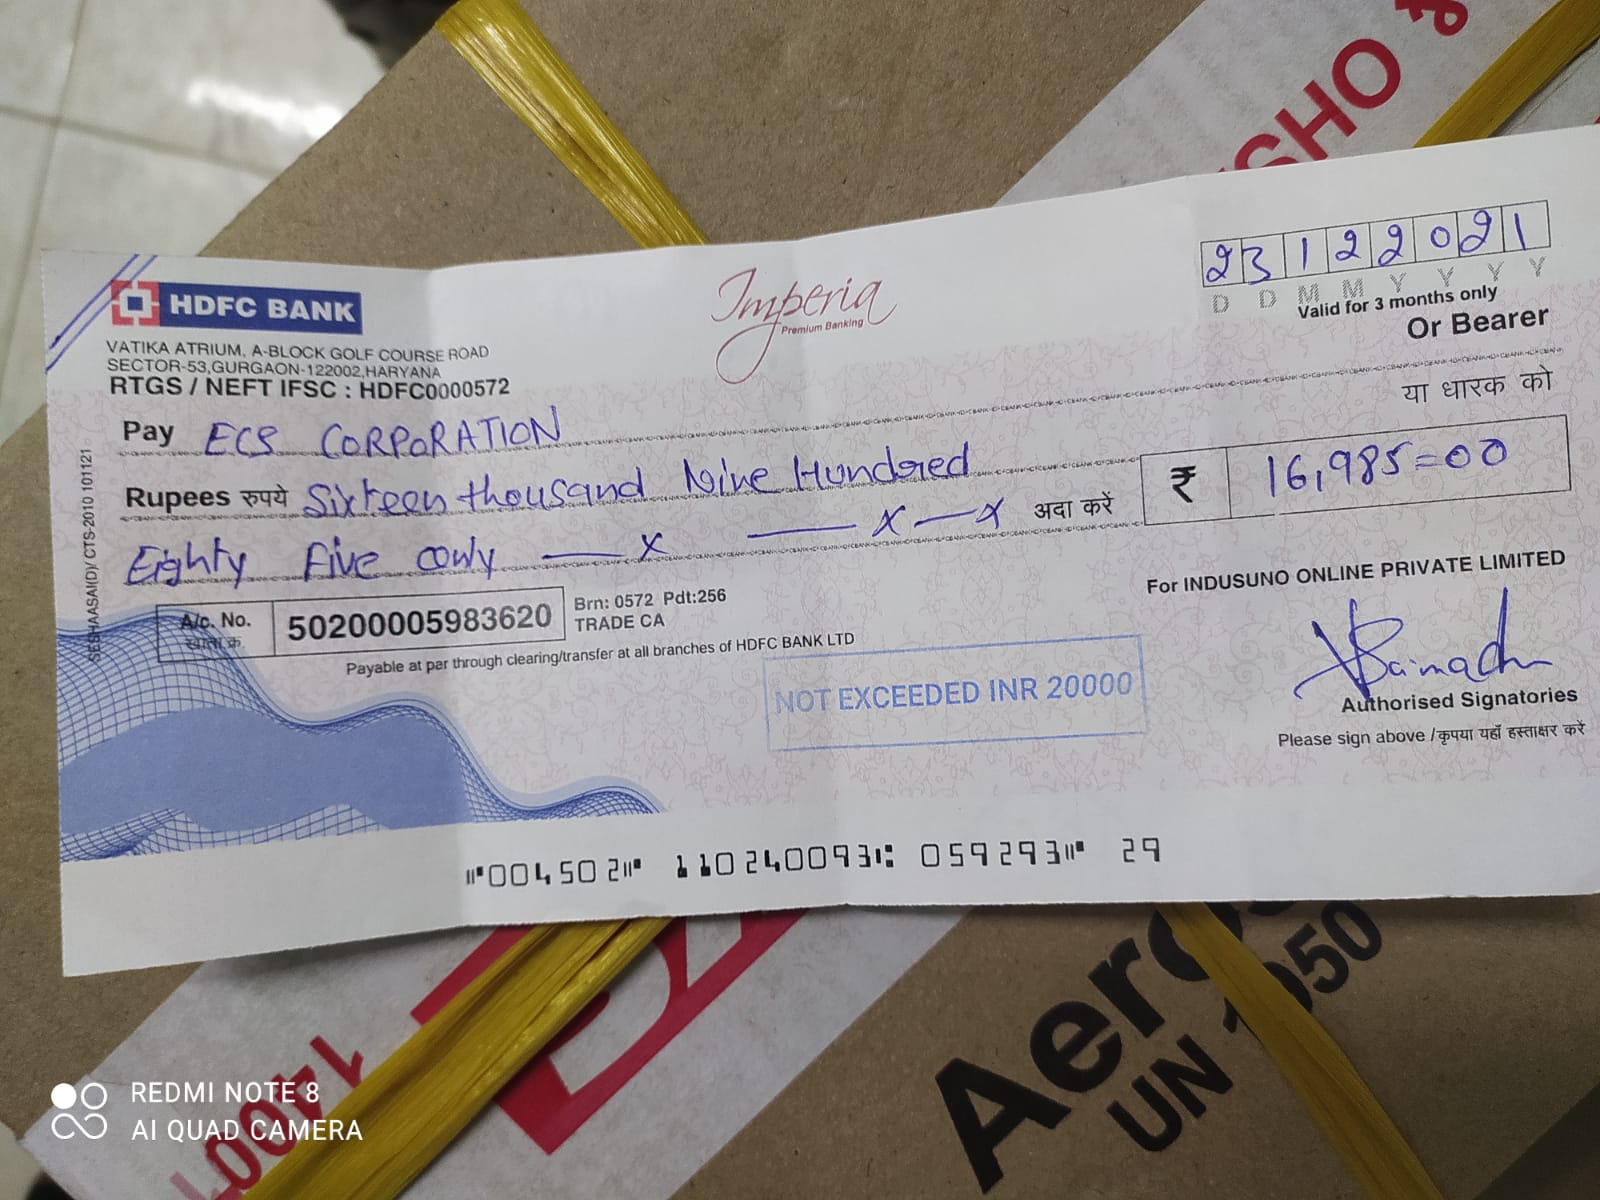 HDFC BANK
VATIKA ATRIUM, A-BLOCK GOLF COURSE ROAD
SECTOR-53,GURGAON-122002,HARYANA
RTGS / NEFT IFSC : HDFC0000572
Imperia
Premium Banking
23122021
D D M M Y Y Y Y
Valid for 3 months only
Or Bearer
या धारक को
Pay ECS CORPORATION
Rupees रुपये Sixteen thousand Nine Hundred
Eighty Five only — x — x — x अदा करें
₹ 16,985=00
A/c. No. 50200005983620
खाता क्र.
Brn: 0572 Pdt:256
TRADE CA
Payable at par through clearing/transfer at all branches of HDFC BANK LTD
NOT EXCEEDED INR 20000
For INDUSUNO ONLINE PRIVATE LIMITED
Authorised Signatories
Please sign above / कृपया यहाँ हस्ताक्षर करें
SESHAASAI(D)/ CTS-2010 101121
⑈004502⑈ 110240093⑆ 059293⑈ 29
SHO
UN 1950
14001
REDMI NOTE 8
AI QUAD CAMERA